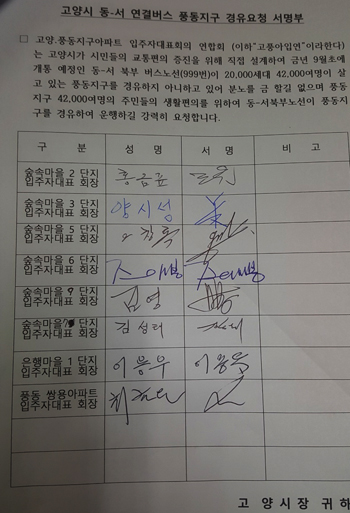 고양시 동-서 연결버스 풍동지구 경유요청 서명부
□ 고양.풍동지구아파트 입주자대표회의 연합회 (이하"고풍아입연"이라한다)
는 고양시가 시민들의 교통편의 증진을 위해 직접 설계하여 금년 9월초에
개통 예정인 동-서 북부 버스노선(999번)이 20,000세대 42,000여명이 살
고 있는 풍동지구를 경유하지 아니하고 있어 분노를 금 할길 없으며 풍동
지구 42,000여명의 주민들의 생활편의를 위하여 동-서북부노선이 풍동지
구를 경유하여 운행하길 강력히 요청합니다.
구 분 성 명 서 명 비 고
숲속마을 2 단지
입주자대표 회장 홍금표
숲속마을 3 단지
입주자대표 회장 양시성
숲속마을 5 단지
입주자대표 회장
숲속마을 6 단지
입주자대표 회장
숲속마을 단지
입주자대표 회장 김영
숲속마을 단지
입주자대표 회장 김성
은행마을 1 단지
입주자대표 회장 이풍우
풍동 쌍용아파트
입주자대표 회장
고양시장 귀하